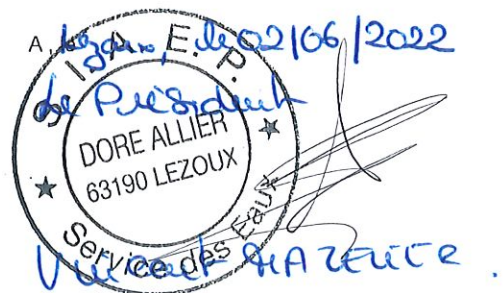 A, Lezoux, le 02/06/2022
Le Président
S.I.A.E.P.
DORE ALLIER
63190 LEZOUX
Service des Eaux
Vincent MAZELIER.